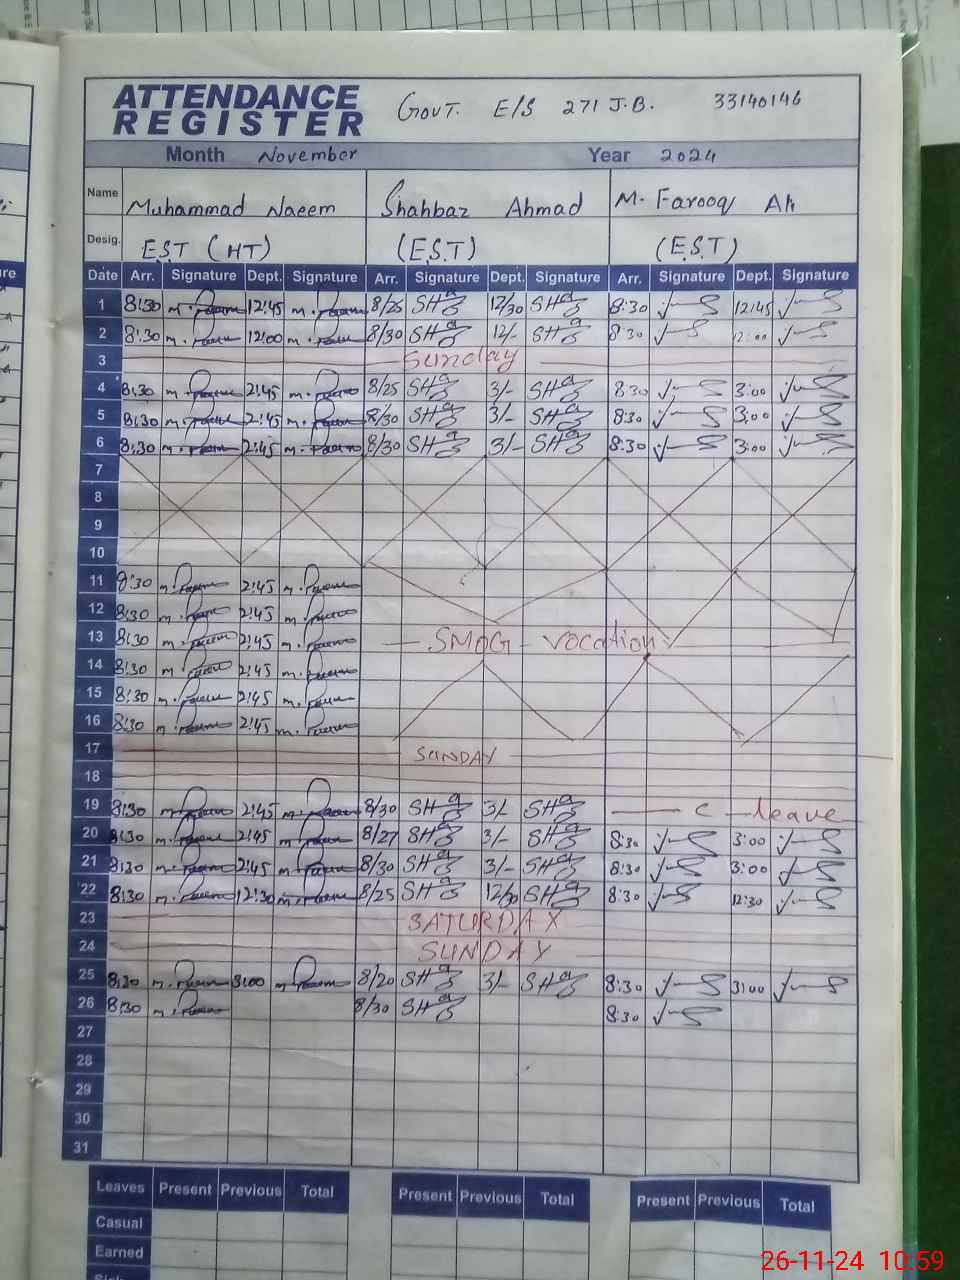 ATTENDANCE REGISTER GOVT. E/S 271 J.B. 33140146
Month November Year 2024
Name Muhammad Naeem Shahbaz Ahmad M. Farooq Ali
Desig. E.S.T (HT) (E.S.T) (E.S.T)
Date Arr. Signature Dept. Signature Arr. Signature Dept. Signature Arr. Signature Dept. Signature
1 8:30 12:45 8/25 SH 12/30 SH 8:30 12:45
2 8:30 12:00 8/30 SH 12/- SH 8:30 12:00
3 Sunday
4 8:30 2:45 8/25 SH 3/- SH 8:30 3:00
5 8:30 2:45 8/30 SH 3/- SH 8:30 3:00
6 8:30 2:45 8/30 SH 3/- SH 8:30 3:00
7
8
9
10
11 8:30 2:45
12 8:30 2:45
13 8:30 2:45 SMOG - Vocation
14 8:30 2:45
15 8:30 2:45
16 8:30 2:45
17 SUNDAY
18
19 8:30 2:45 8/30 SH 3/- SH C - leave
20 8:30 2:45 8/27 SH 3/- SH 8:30 3:00
21 8:30 2:45 8/30 SH 3/- SH 8:30 3:00
22 8:30 12:30 8/25 SH 12/30 SH 8:30 12:30
23 SATURDAY
24 SUNDAY
25 8:30 3:00 8/20 SH 3/- SH 8:30 3:00
26 8:30 8/30 SH 8:30
27
28
29
30
31
Leaves Present Previous Total Present Previous Total Present Previous Total
Casual
Earned
26-11-24 10:59